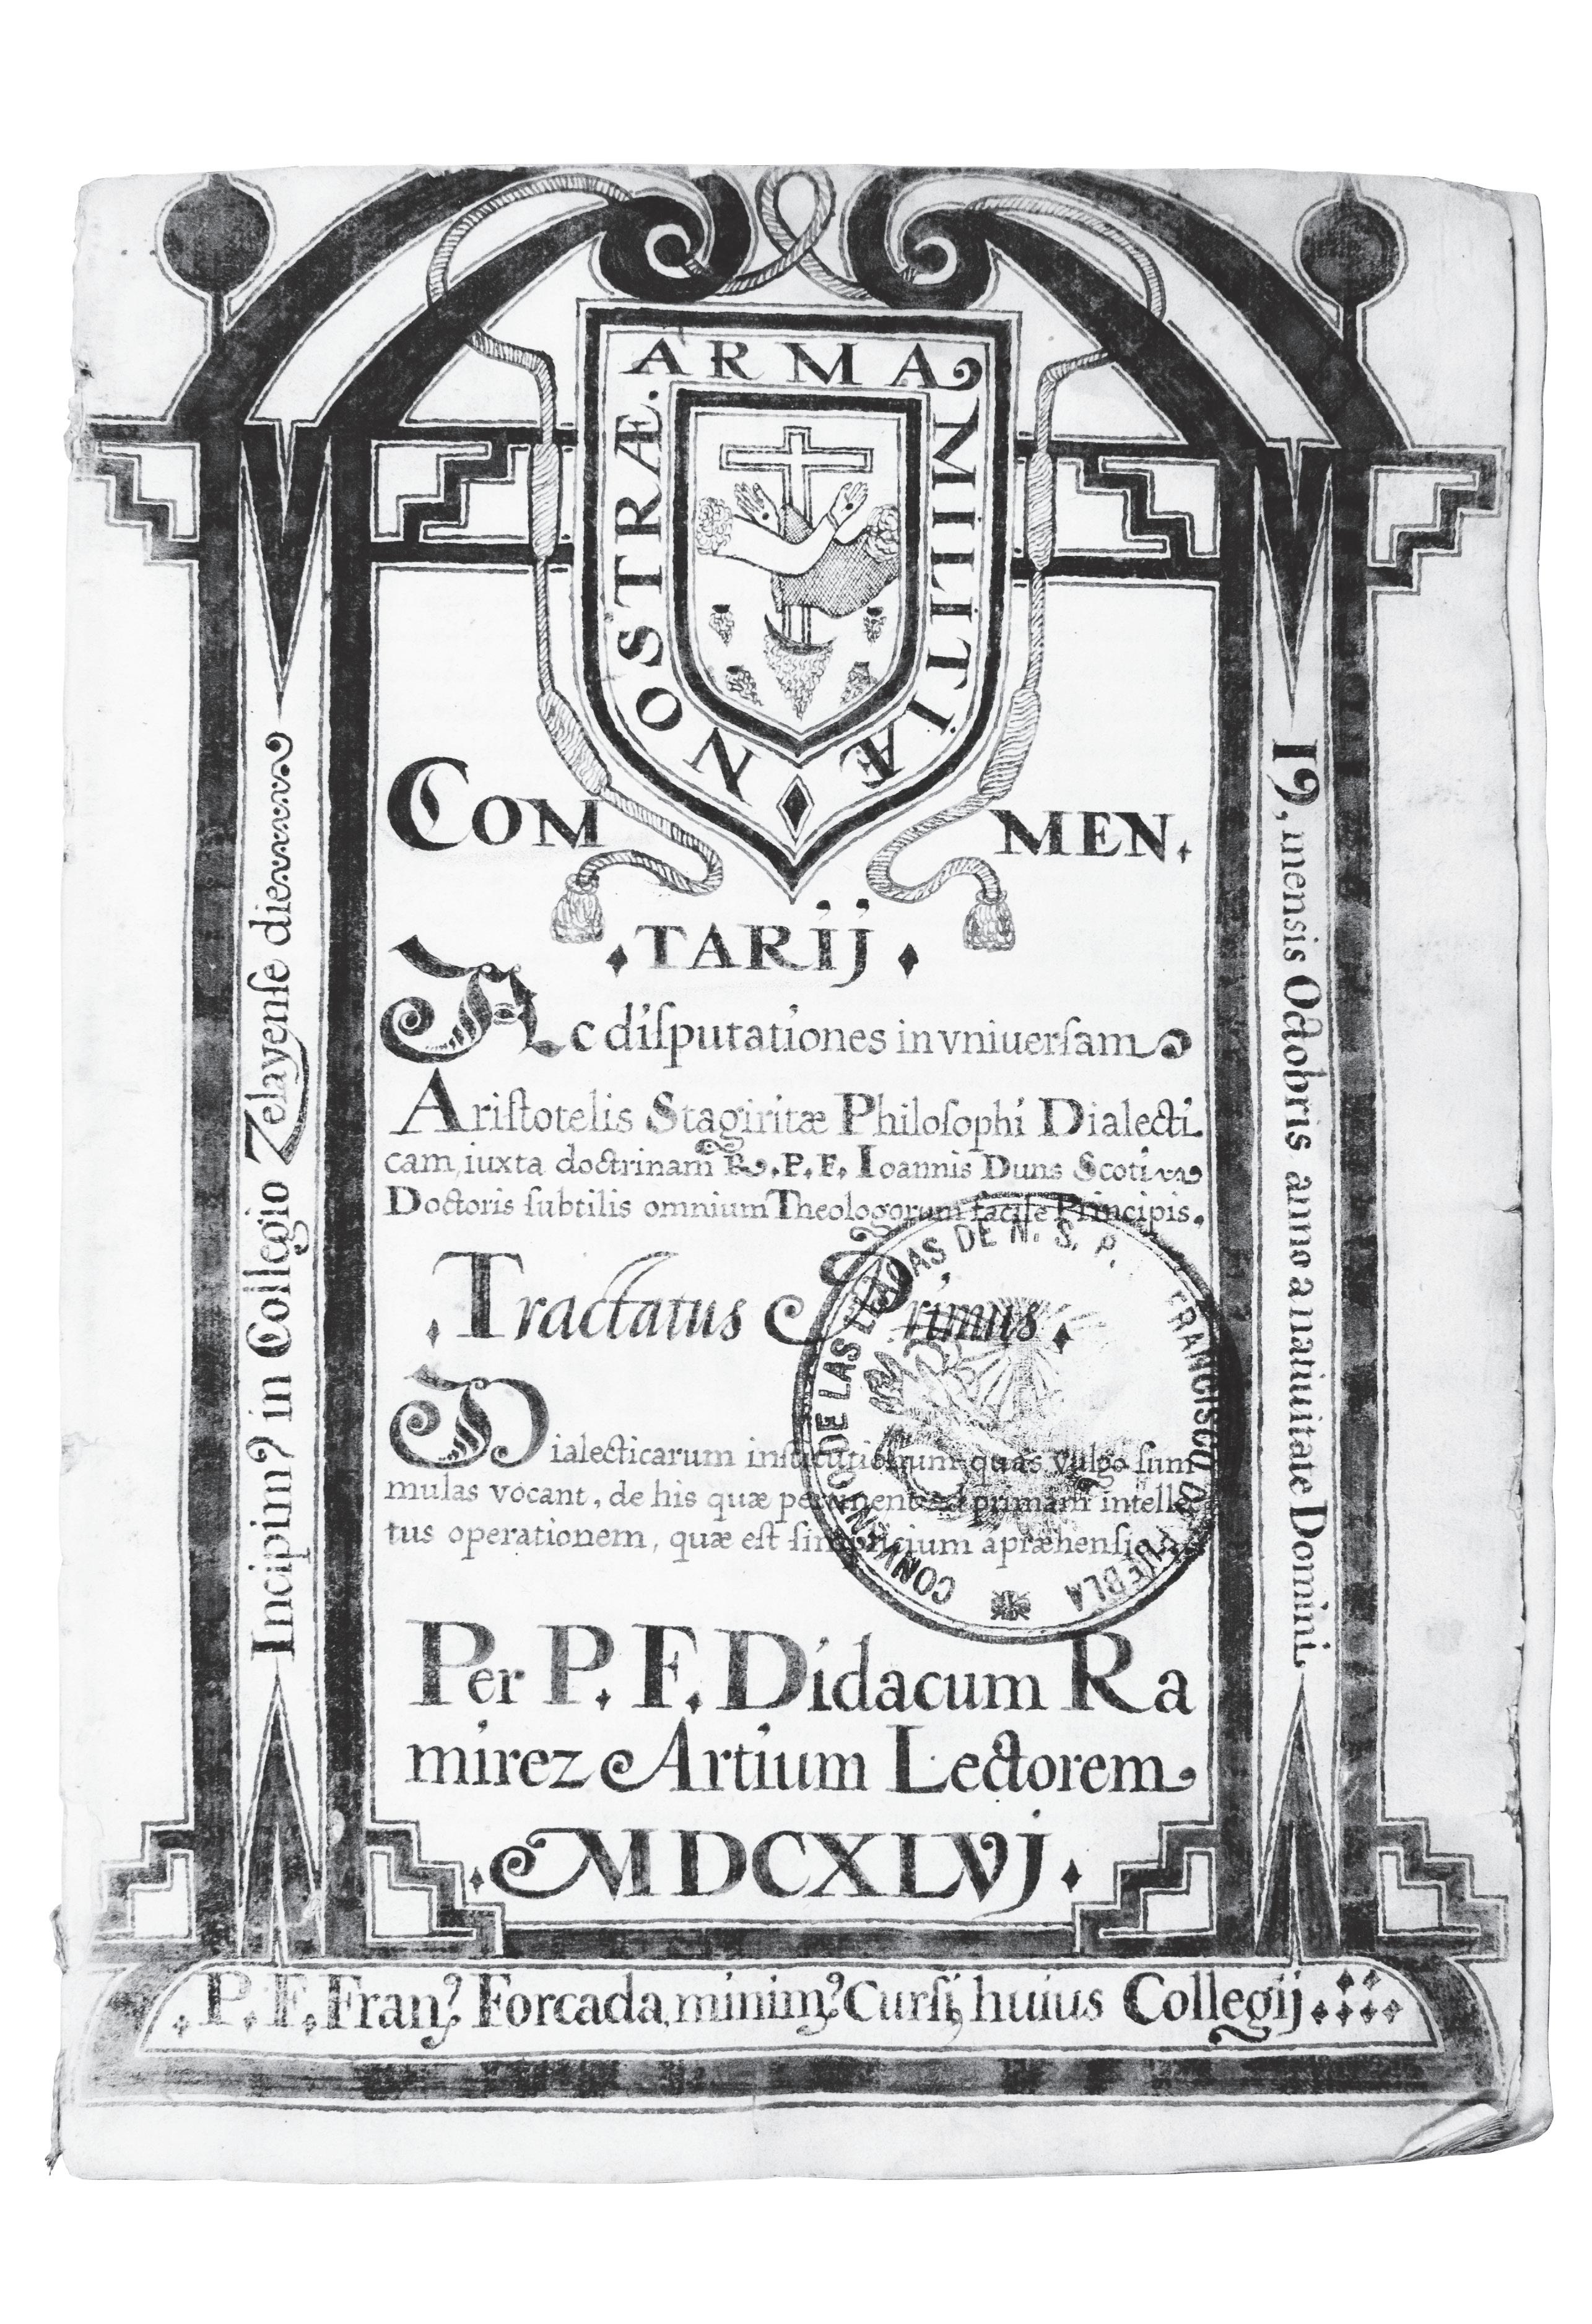 ARMA MILITIÆ NOSTRÆ.
COM MEN.
TARIJ
Ac diſputationes in vniuerſam
Ariſtotelis Stagiritæ Philoſophi Dialecti
cam, iuxta doctrinam R. P. F. Ioannis Duns Scoti
Doctoris ſubtilis omnium Theologorum facile Principis.
Tractatus Primus
Dialecticarum inſtitutionum quas vulgo ſum
mulas vocant, de his quæ pertinent ad primam intellec
tus operationem, quæ eſt ſimplicium apræhenſio
Per P. F. Didacum Ra
mirez Artium Lectorem
MDCXLVJ
P. F. Fran? Forcada minim? Curſ huius Collegij
Incipim? in Collegio Zelayenſe die
19, mensis Octobris anno a natiuitate Domini.
CONVENTO DE LAS LLAGAS DE N. S. P. FRANCISCO PUEBLA